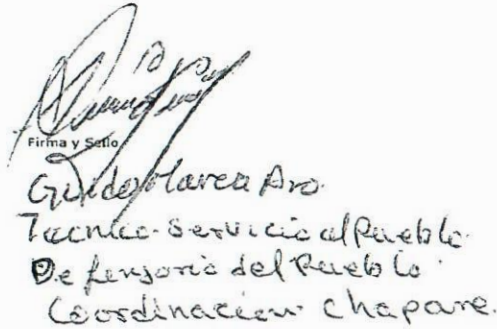 Firma y Sello
Guido Marca Aro.
Tecnico. Servicio al Pueblo.
Defensoria del Pueblo.
Coordinacion Chapare.